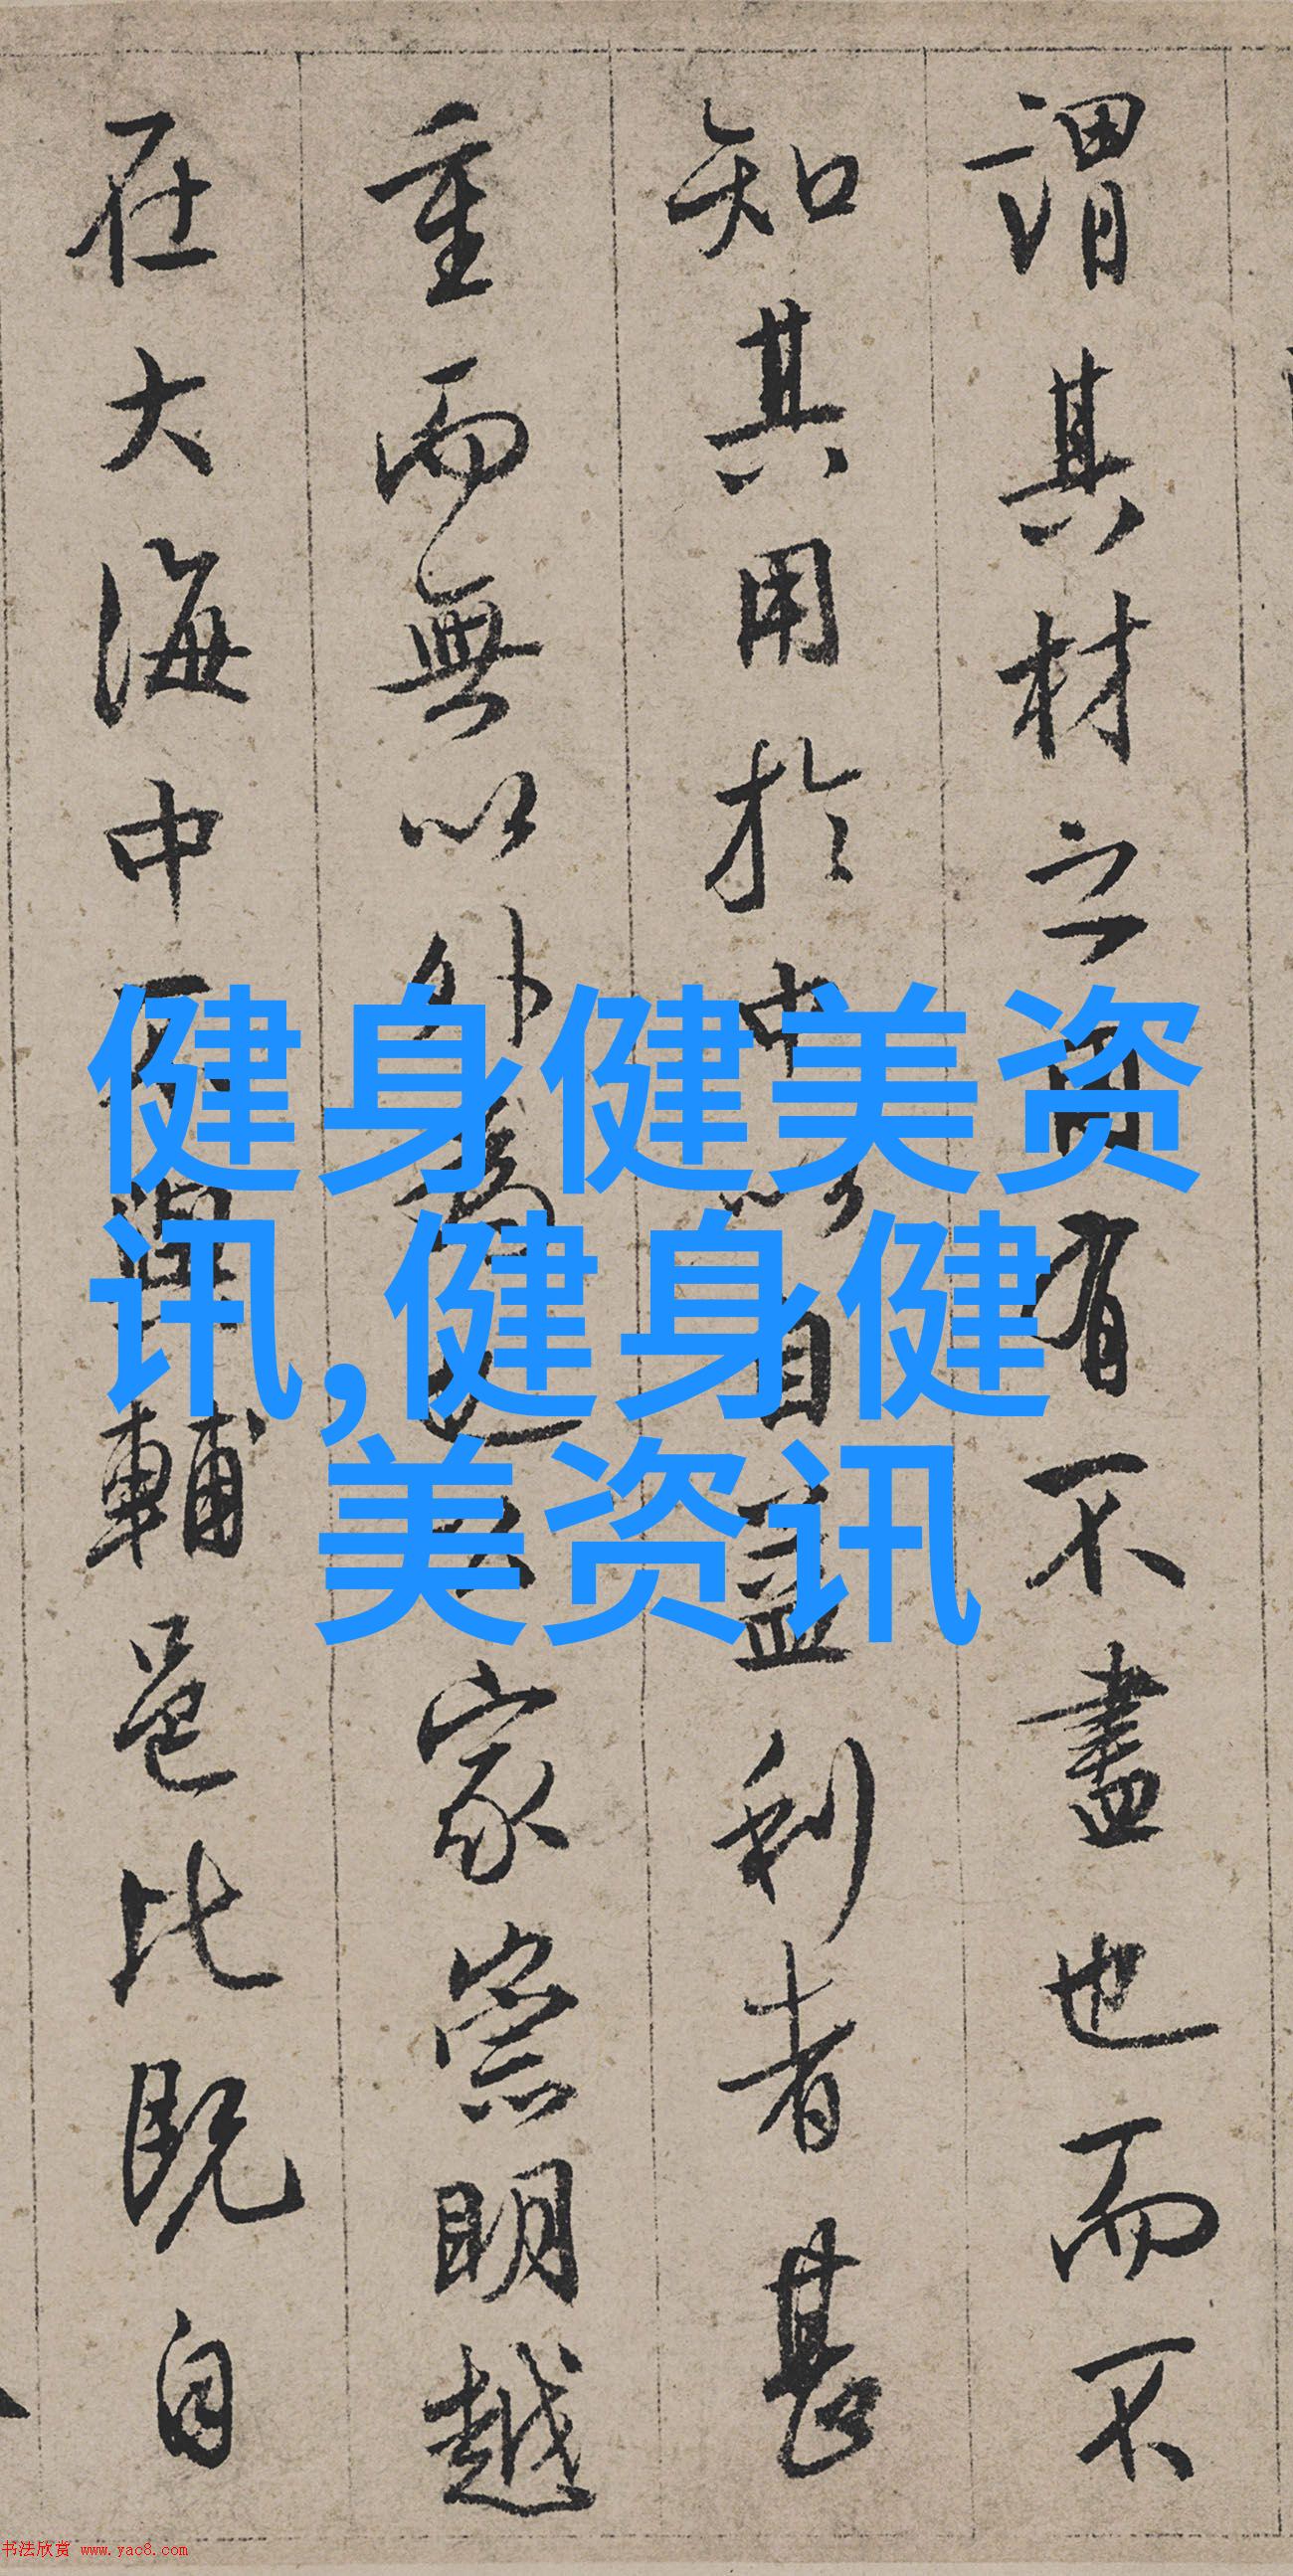 謂其材之有不盡也而不
知其用於中以自益利者甚
重而無以外家崇明越
在大海中輔邑比既自
健身健美资
讯,健身健
美资讯
书法欣赏 www.yac8.com